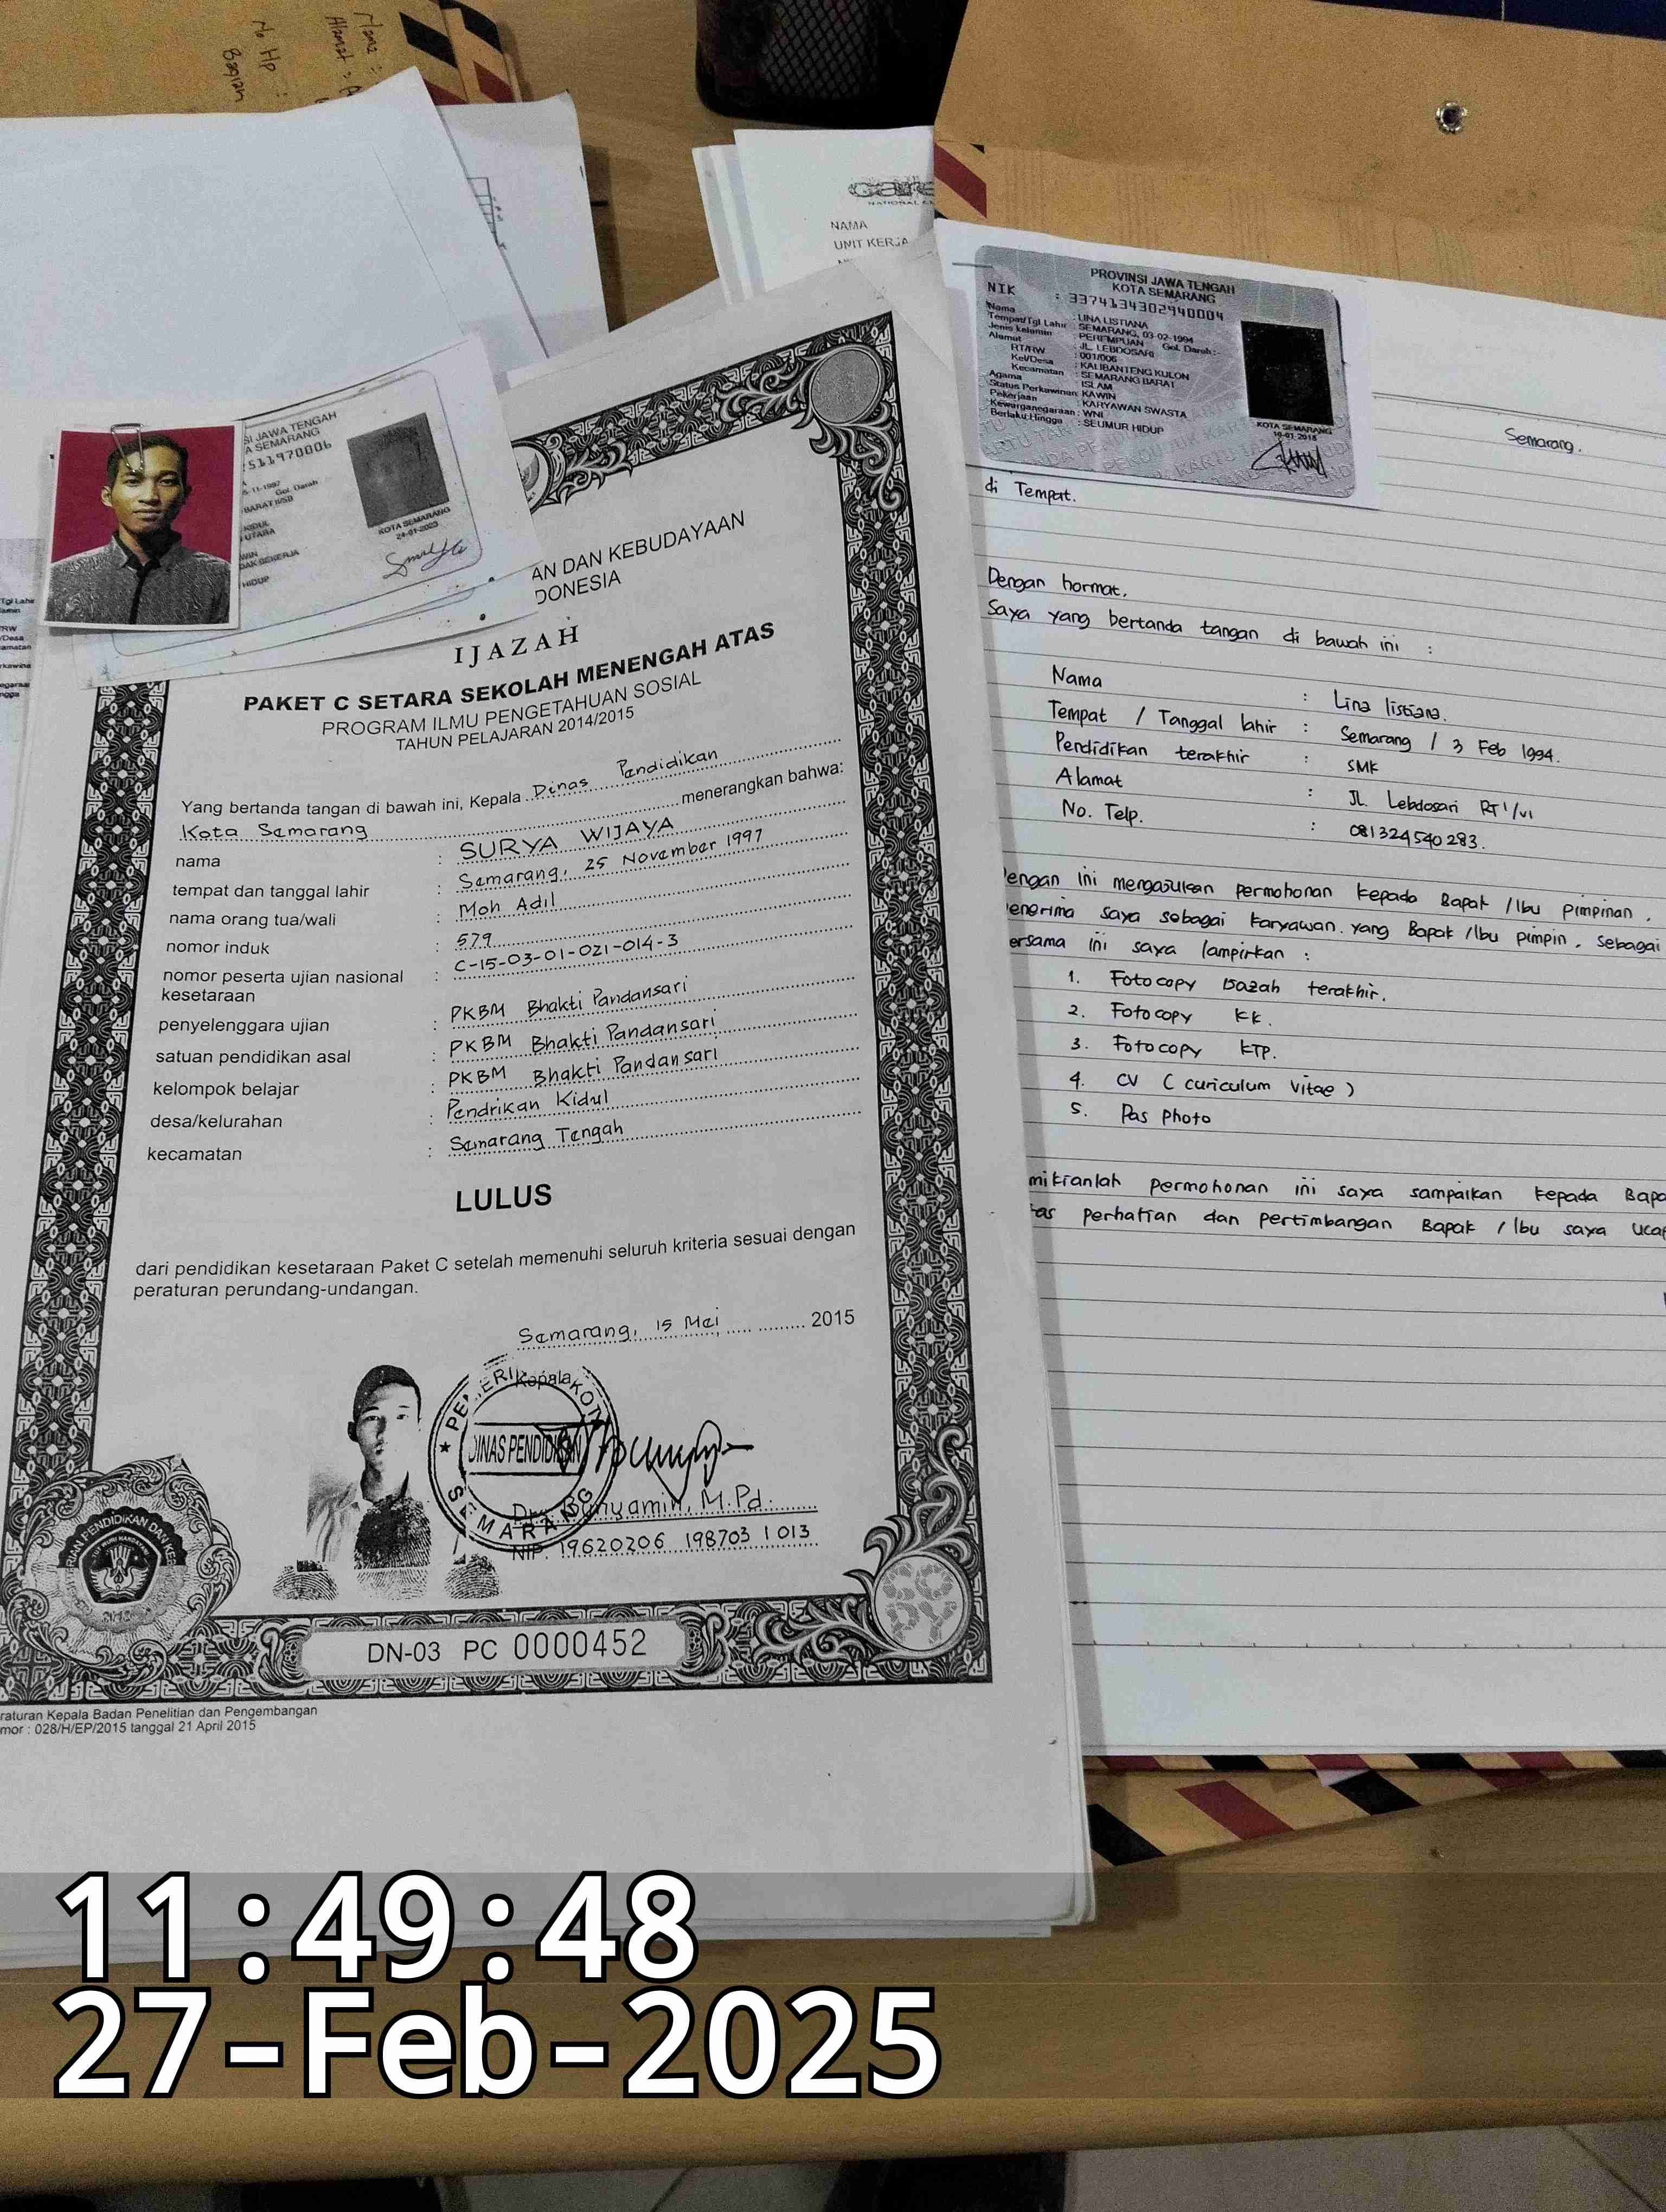 Nama :
Alamat :
No Hp :
Bagian
care
NAMA
UNIT KERJA
SI JAWA TENGAH
A SEMARANG
511970006
5-11-1997
Gol. Darah
BARAT II/5B
KIDUL
UTARA
WIN
DAK BEKERJA
HIDUP
KOTA SEMARANG
24-01-2023
Tgl Lahir
RW
/Desa
camatan
AN DAN KEBUDAYAAN
DONESIA
IJAZAH
PAKET C SETARA SEKOLAH MENENGAH ATAS
PROGRAM ILMU PENGETAHUAN SOSIAL
TAHUN PELAJARAN 2014/2015
Yang bertanda tangan di bawah ini, Kepala Dinas Pendidikan
Kota Semarang menerangkan bahwa:
nama : SURYA WIJAYA
tempat dan tanggal lahir : Semarang, 25 November 1997
nama orang tua/wali : Moh Adil
nomor induk : 579
nomor peserta ujian nasional : C-15-03-01-021-014-3
kesetaraan
penyelenggara ujian : PKBM Bhakti Pandansari
satuan pendidikan asal : PKBM Bhakti Pandansari
kelompok belajar : PKBM Bhakti Pandansari
desa/kelurahan : Pendrikan Kidul
kecamatan : Semarang Tengah
LULUS
dari pendidikan kesetaraan Paket C setelah memenuhi seluruh kriteria sesuai dengan
peraturan perundang-undangan.
Semarang, 15 Mei 2015
Kepala
DINAS PENDIDIKAN
SEMARANG
Drs. Bunyamin, M.Pd.
NIP. 19620206 198703 1 013
DN-03 PC 0000452
raturan Kepala Badan Penelitian dan Pengembangan
mor : 028/H/EP/2015 tanggal 21 April 2015
PROVINSI JAWA TENGAH
KOTA SEMARANG
NIK : 3374134302940004
Nama : LINA LISTIANA
Tempat/Tgl Lahir : SEMARANG, 03-02-1994
Jenis kelamin : PEREMPUAN Gol. Darah:-
Alamat : JL. LEBDOSARI
RT/RW : 001/006
Kel/Desa : KALIBANTENG KULON
Kecamatan : SEMARANG BARAT
Agama : ISLAM
Status Perkawinan: KAWIN
Pekerjaan : KARYAWAN SWASTA
Kewarganegaraan : WNI
Berlaku Hingga : SEUMUR HIDUP
KOTA SEMARANG
10-01-2018
Semarang.
di Tempat.
Dengan hormat,
Saya yang bertanda tangan di bawah ini :
Nama : Lina listiana.
Tempat / Tanggal lahir : Semarang / 3 Feb 1994.
Pendidikan terakhir : SMK
Alamat : JL. Lebdosari RT 1/VI
No. Telp. : 081324540283.
engan ini mengajukan permohonan kepada Bapak /Ibu pimpinan.
enerima saya sebagai karyawan yang Bapak /Ibu pimpin. sebagai
ersama ini saya lampirkan :
1. Fotocopy Ijazah terakhir.
2. Fotocopy KK.
3. Fotocopy KTP.
4. CV ( curiculum vitae )
5. Pas Photo
mikianlah permohonan ini saya sampaikan kepada Bapa
tas perhatian dan pertimbangan Bapak / Ibu saya ucap
11:49:48
27-Feb-2025